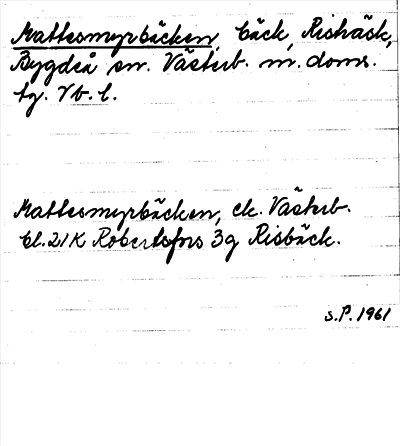 Mattesmyrbäcken, bäck, Risbäck,
Bygdeå sn. Västerb. m. doms.
tg. Vb. l.
Mattesmyrbäcken, ek. Västerb.
bl. 21K Robertsfors 3g Risbäck.
S.P. 1961